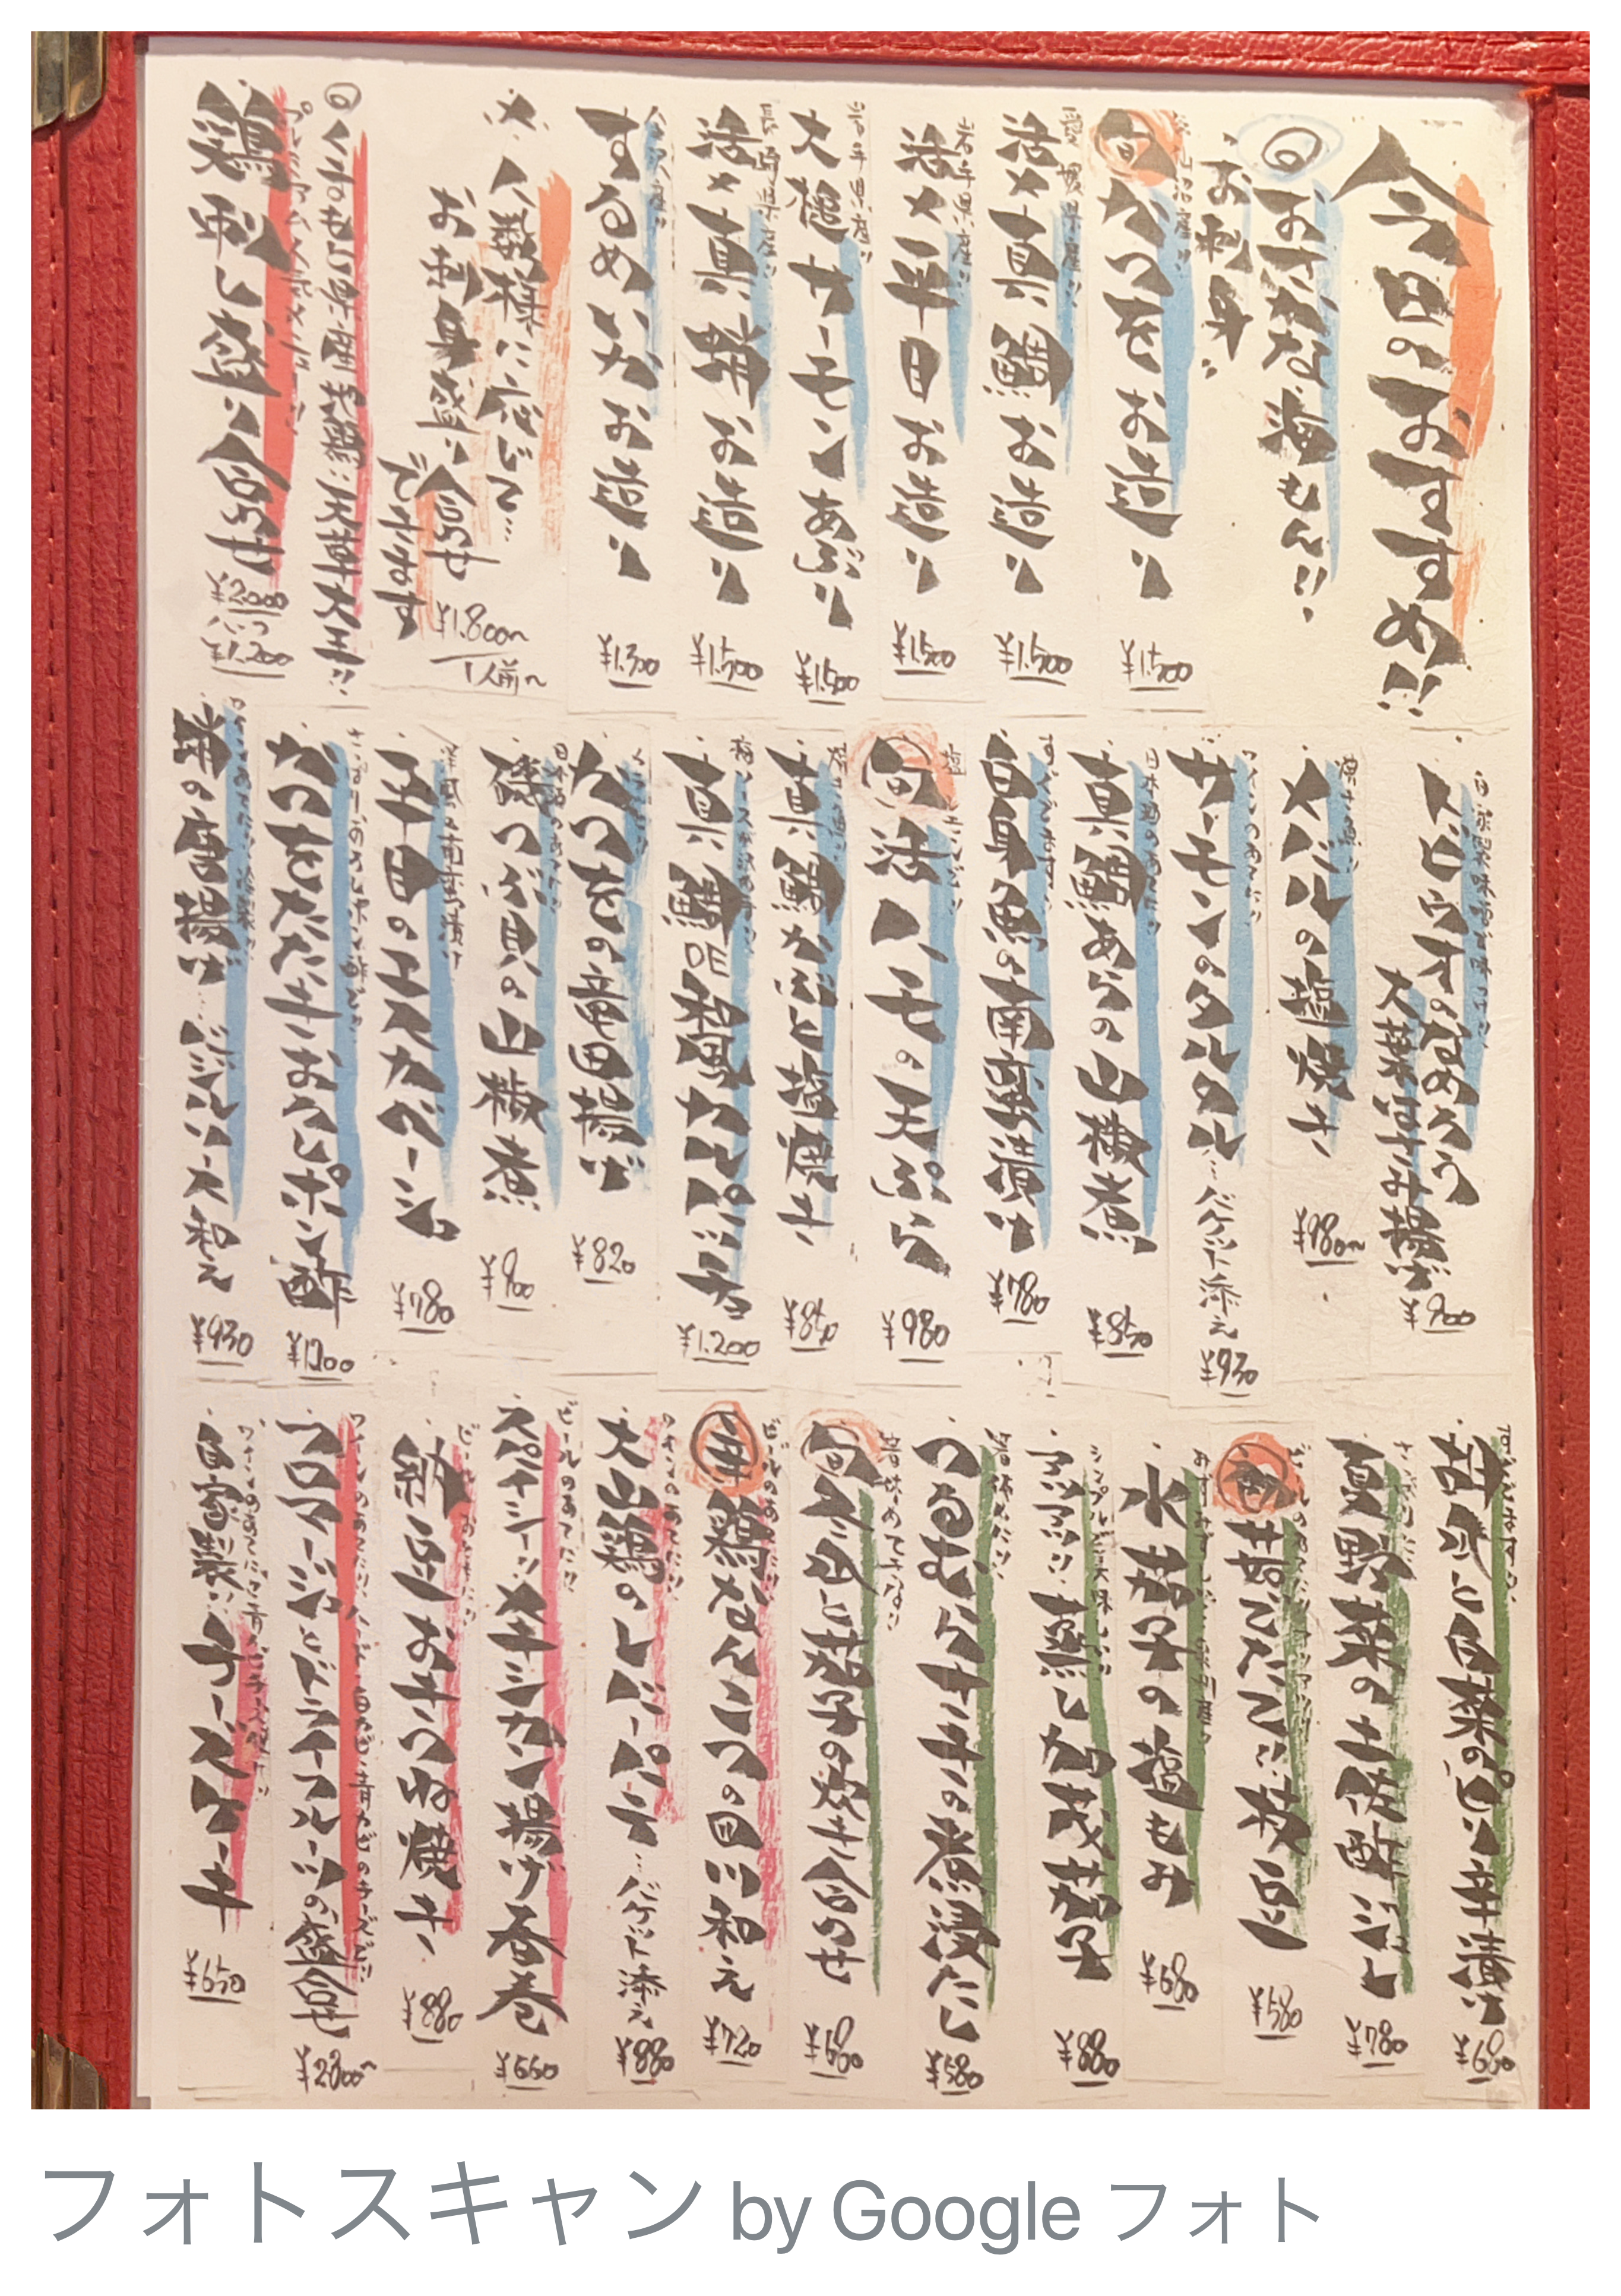 今日のおすすめ!!
おさかな海もん!!
お刺身
旬かつをお造り
¥1.500
愛媛県産!!
活〆真鯛お造り
¥1.500
岩手県産!!
活〆平目お造り
¥1.500
岩手県産!!
大槌サーモンあぶり
¥1.500
長崎県産!!
活〆真鯵お造り
¥1.500
するめいかお造り
¥1.300
〆人数様に応じて…
お刺身盛り合せ
できます
¥1.800~
1人前~
くまもと県産地鶏!!天草大王!!
プレミアムメニュー!!
鶏刺し盛り合せ
¥2000
ハーフ
¥1.200
トビウオのなめろう
大葉はさみ揚げ
¥900
メバルの塩焼き
¥980~
サーモンのタルタル…バゲット添え
¥930
日本酒のあてに!!
真鯛あらの山椒煮
¥850
すぐでます!!
白身魚の南蛮漬け
¥780
旬活ハモの天ぷら
¥980
真鯛かぶと塩焼き
¥850
真鯛DE和風カルパッチョ
¥1.200
かつをの竜田揚げ
¥820
日本酒のあてに!!
磯つぶ貝の山椒煮
¥900
洋風の南蛮漬け
平目のエスカベーシュ
¥780
さっぱりおろしポン酢で!!
かつをたたきおろしポン酢
¥1200
鯵の唐揚げ…バジルソース和え
¥930
すぐでます!!
胡瓜と白菜のピリ辛漬け
¥680
夏野菜の土佐酢ジュレ
¥780
枝豆
¥580
水茄子の塩もみ
¥680
シンプルに美味しい!!
アツアツ!!蒸し加茂茄子
¥880
つるむらさきの煮浸たし
¥580
旬冬瓜と茄子の炊き合わせ
¥680
ビールのあてに!!
鶏なんこつの目川和え
¥720
ワインのあてに!!
大山鶏のレバーパテ…バゲット添え
¥880
ビールのあてに!!
スパイシー!!メキシカン揚げ春巻
¥660
納豆お好つね焼き
¥880
ワインのあてに!!ハード・白カビ・青カビのチーズで!!
フロマージュとドライフルーツの盛合せ
¥2800~
自家製!!チーズケーキ
¥650
フォトスキャン by Google フォト